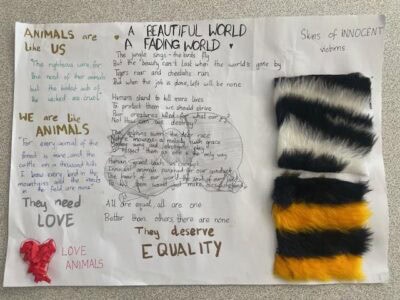 ANIMALS are
like US
"The righteous care for
the need of their animals
but the kindest acts of
the wicked are cruel."
WE are like
ANIMALS
"For every animal of the
forest is mine, and the
cattle on a thousand hills.
I know every bird in the
mountains, and the insects
in the field are mine"
They need
LOVE
LOVE
ANIMALS
A BEAUTIFUL WORLD
A FADING WORLD
The jungle sings - the birds fly
But the beauty can't last when the world's gone by
Tigers roar and cheetahs run
But when the job is done, left will be none
Humans stand to kill more lives
To protect them we should strive
Poor creatures killed for what
No! How can we destroy?
swim the deer race
with grace
them the only way
Human greed
Innocent animals punished for our
The heart of our world the
All are equal, all are one
Better than others, there are none
They deserve
EQUALITY
Skins of INNOCENT
victims